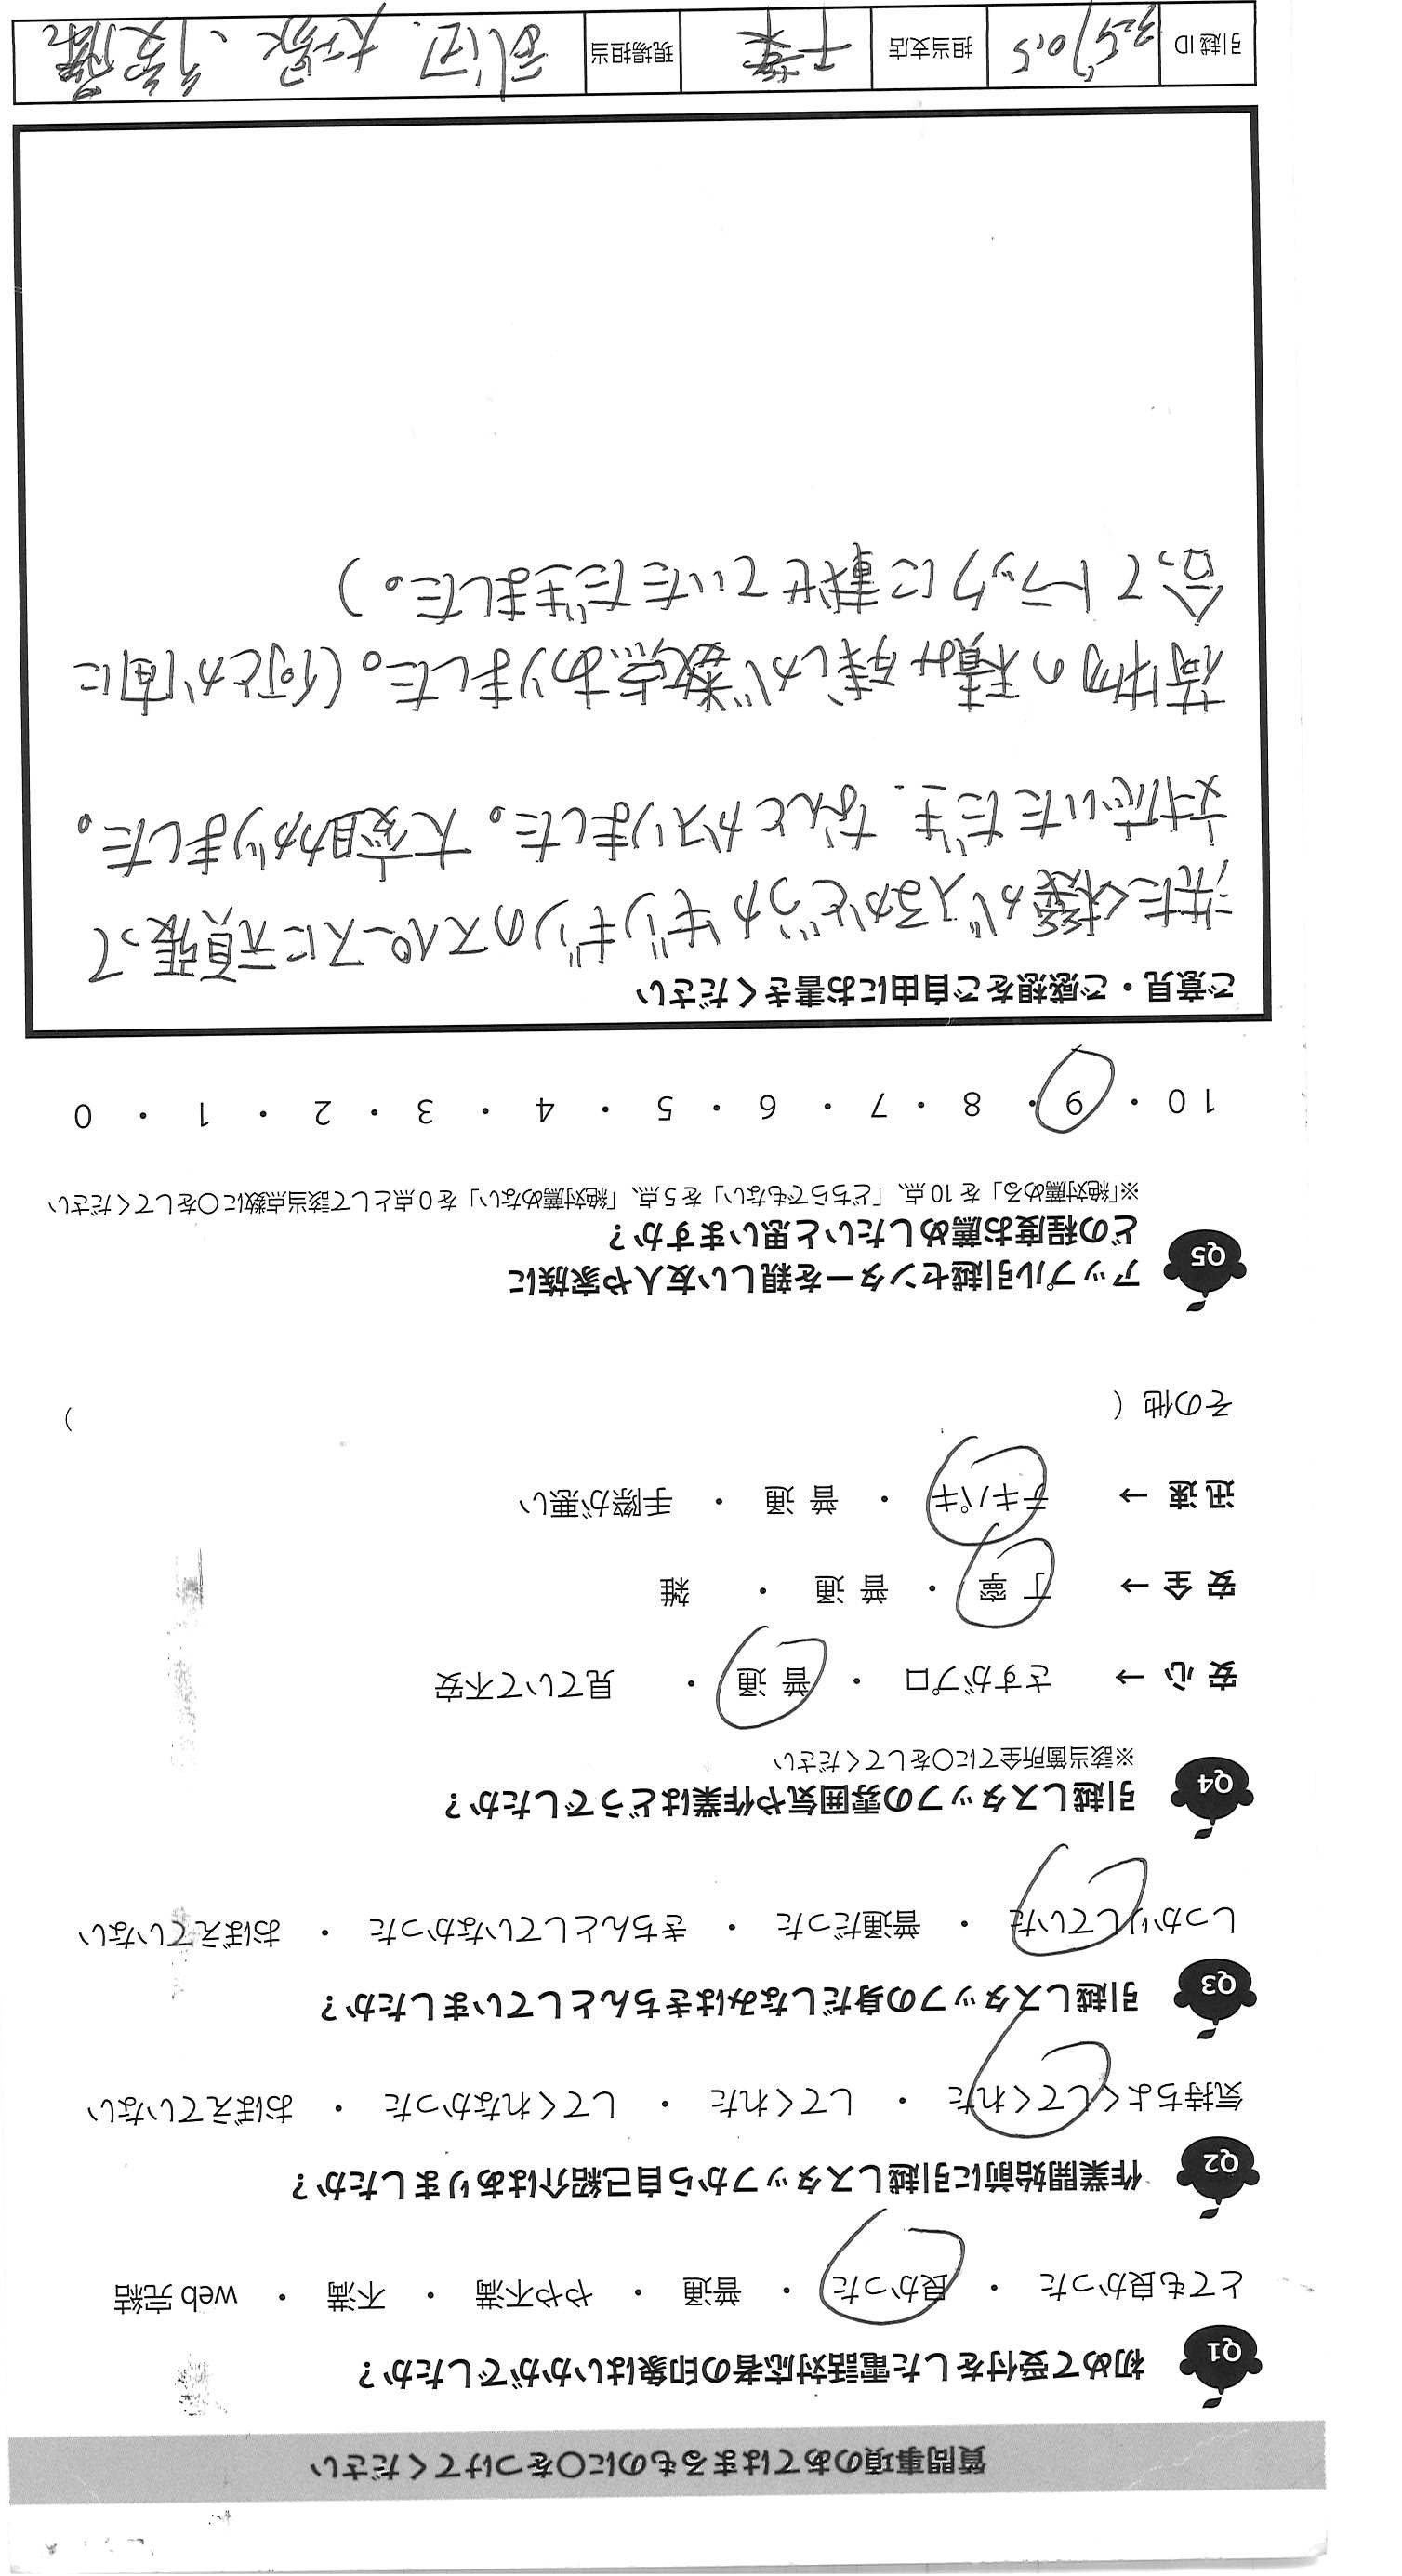 質問事項のあてはまるものに○をつけてください
Q1 初めて受付をした電話対応者の印象はいかがでしたか？
とても良かった ・ 良かった ・ 普通 ・ やや不満 ・ 不満 ・ web 完結
Q2 作業開始前に引越しスタッフから自己紹介はありましたか？
気持ちよくしてくれた ・ してくれた ・ してくれなかった ・ おぼえていない
Q3 引越しスタッフの身だしなみはきちんとしていましたか？
しっかりしていた ・ 普通だった ・ きちんとしていなかった ・ おぼえていない
Q4 引越しスタッフの雰囲気や作業はどうでしたか？
※該当箇所全てに○をしてください
安心 → さすがプロ ・ 普通 ・ 見ていて不安
安全 → 丁寧 ・ 普通 ・ 雑
迅速 → テキパキ ・ 普通 ・ 手際が悪い
その他（ ）
Q5 アップル引越センターを親しい友人や家族に
どの程度お薦めしたいと思いますか？
※「絶対薦める」を 10 点、「どちらでもない」を 5 点、「絶対薦めない」を 0 点として該当点数に○をしてください
10 ・ 9 ・ 8 ・ 7 ・ 6 ・ 5 ・ 4 ・ 3 ・ 2 ・ 1 ・ 0
ご意見・ご感想をご自由にお書きください
洗たく機が入るかどうかギリギリのスペースに頑張って
対応いただき、なんとか入りました。大変助かりました。
荷物の積み残しが数点ありました。(何とか間に
合ってトラックに載せていただきました。)
引越 ID 担当支店 千葉 現場担当 武田、大塚、